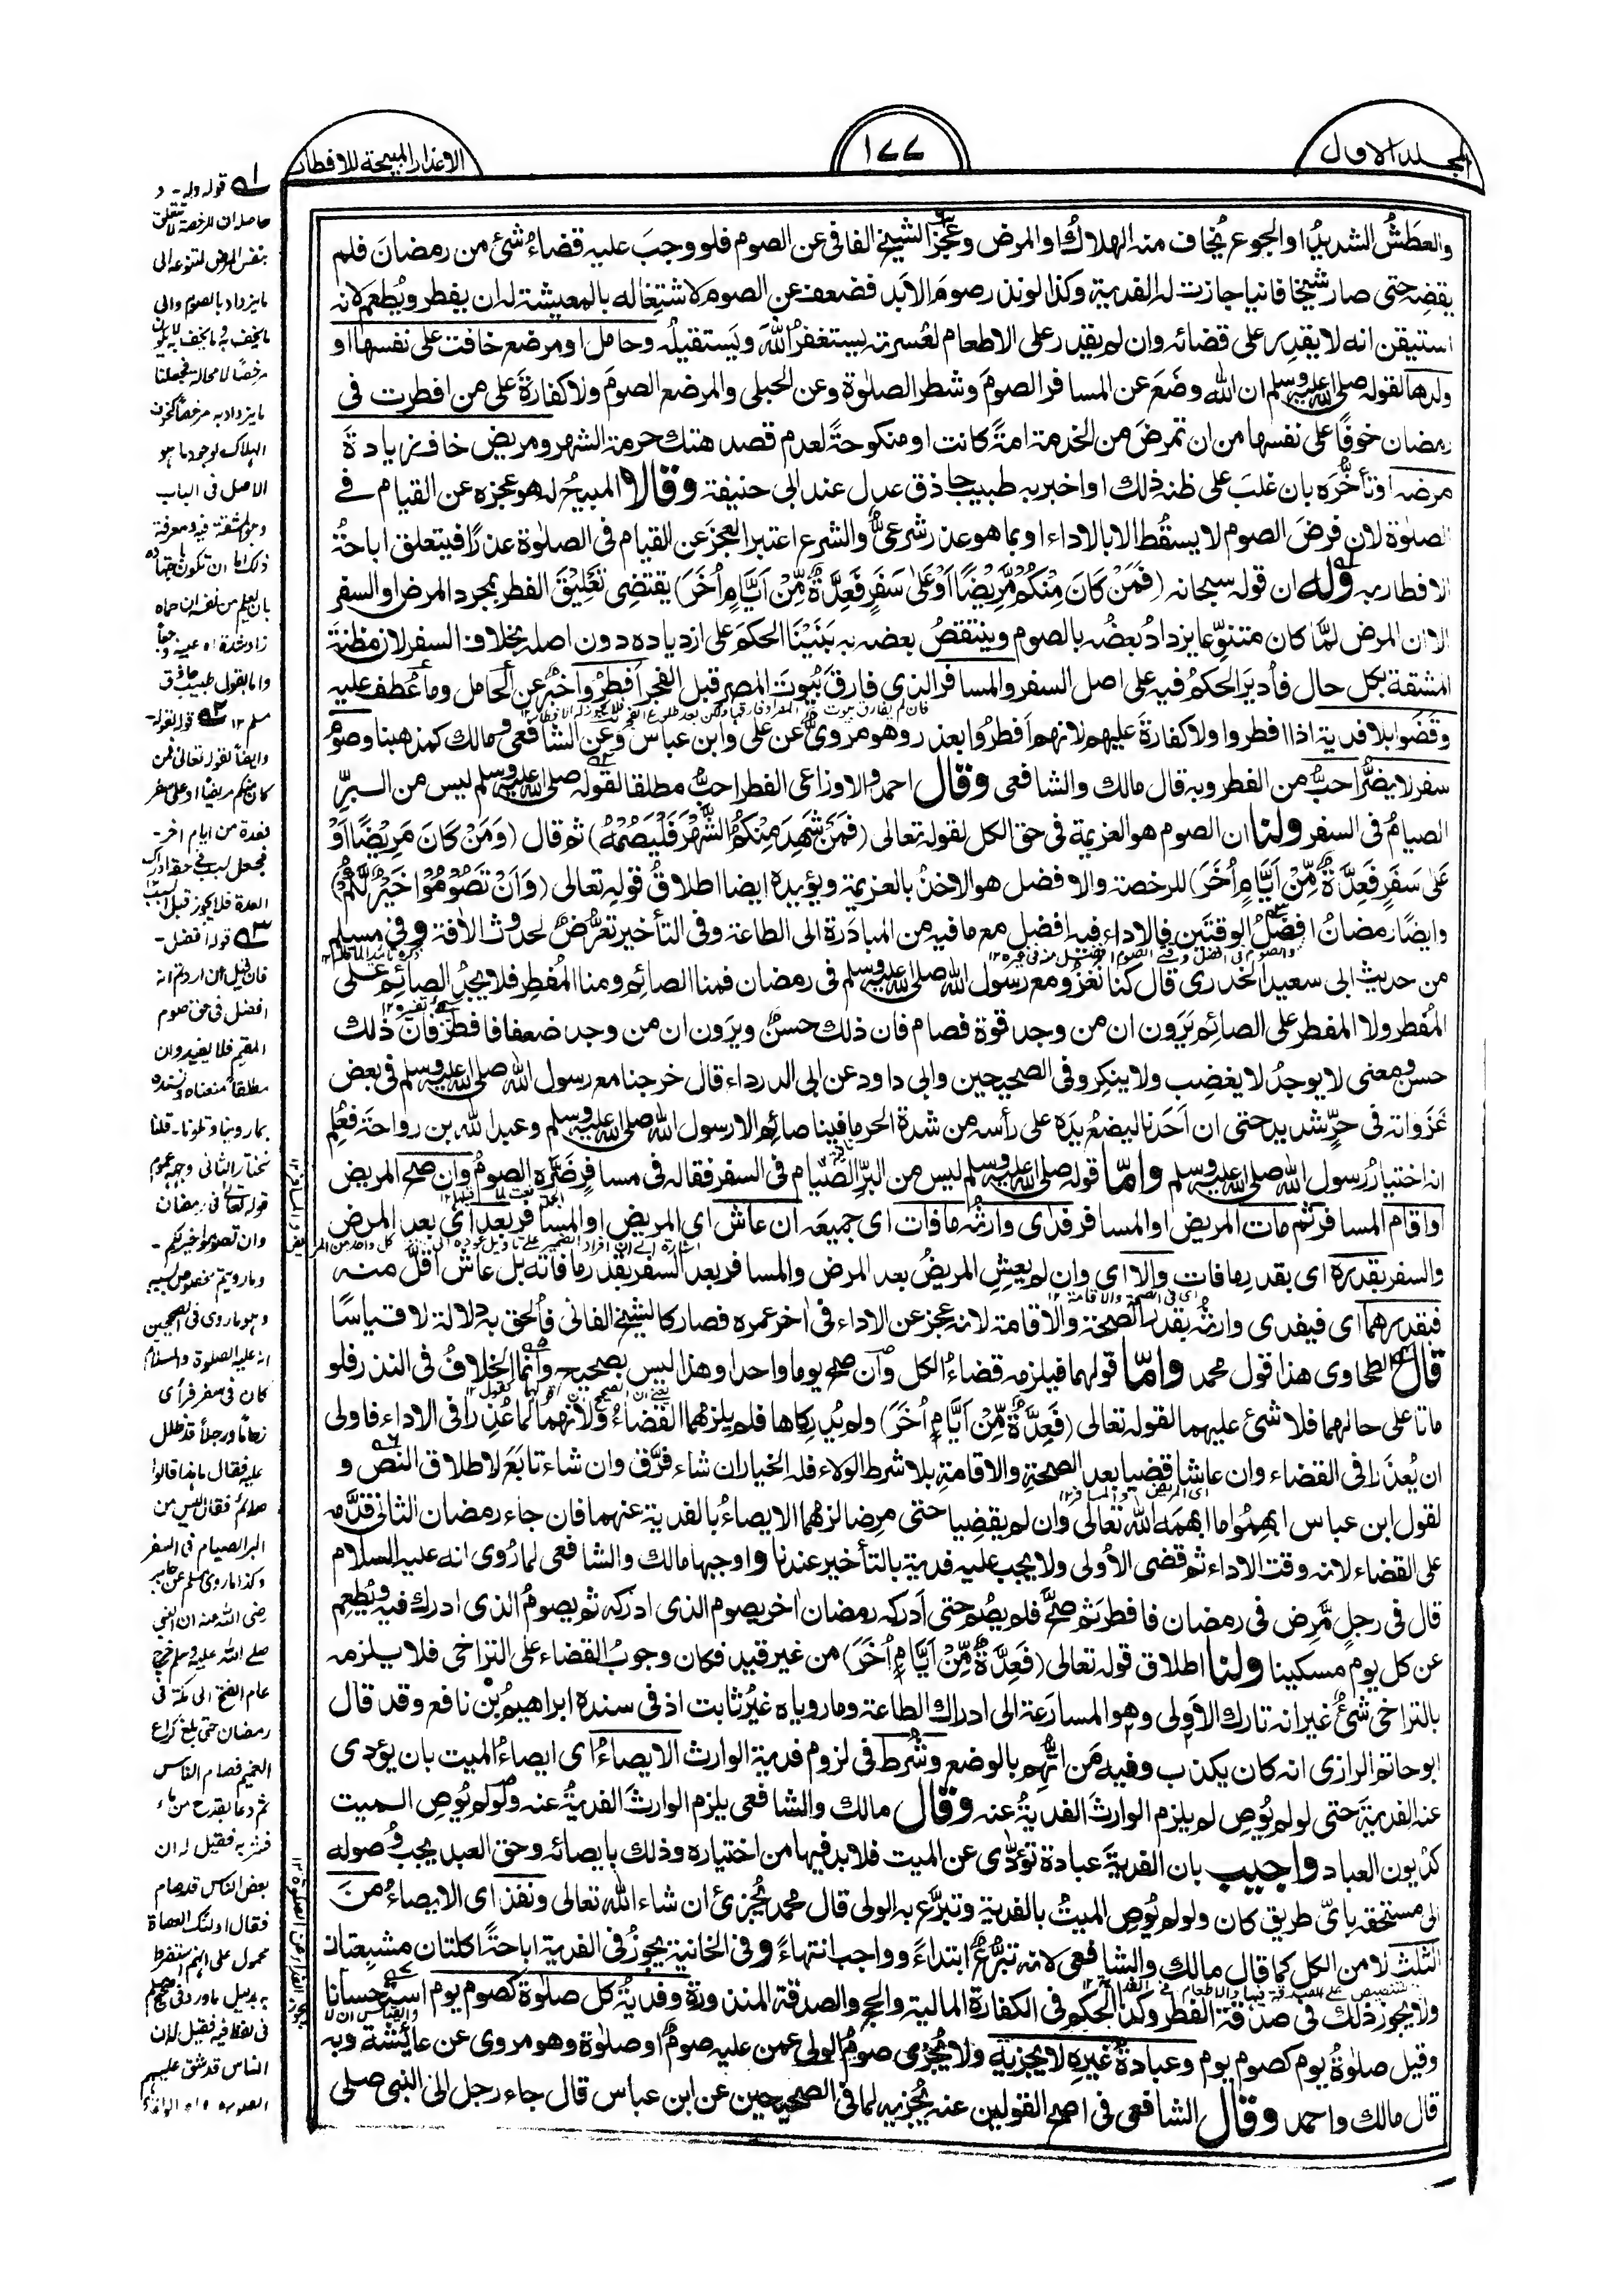 المجلد الاول
١٧٧
الاعذار المبيحة للافطار
والعطشُ الشديدُ او الجوع يُخاف منه الهلاكُ او المرض وعَجزُ الشيخ الفاني عن الصوم فلو وجبَ عليه قضاءُ شئ من رمضانَ فلم
يقضه حتى صار شيخا فانيا جازت له الفدية وكذا لو نذر صومَ الابد فضعف عن الصوم لاشتغاله بالمعيشة له ان يفطر ويُطعم لانه
استيقن انه لا يقدِر على قضائه وان لم يقدر على الاطعام لعُسرته يستغفرُ اللهَ ويَستقيلُه وحامل او مرضع خافت على نفسها او
ولدها لقوله صلى الله عليه وسلم ان الله وضَعَ عن المسافر الصومَ وشطر الصلوٰة وعن الحبلى والمرضع الصومَ ولا كفارةَ على من افطرت فى
رمضان خوفًا على نفسها من ان تمرضَ من الخدمة امةً كانت او منكوحةً لعدم قصد هتك حرمة الشهر ومريض خاف زيادةَ
مرضه او تأخُّرَه بان غلبَ على ظنه ذلك او اخبر به طبيب حاذق عدل عند ابى حنيفة وقالا المبيحُ له هو عجزه عن القيام فے
الصلوٰة لان فرضَ الصوم لا يسقُط الا بالاداء او بما هو عذر شرعىٌّ والشرع اعتبر العجزَ عن القيام فى الصلوٰة عذرًا فيتعلق اباحةُ
الافطار به وله ان قوله سبحانه (فَمَنْ كَانَ مِنْكُمْ مَّرِيْضًا اَوْ عَلٰى سَفَرٍ فَعِدَّةٌ مِّنْ اَيَّامٍ اُخَرَ) يقتضى تعليقَ الفطر بمجرد المرض او السفر
الا ان المرض لمَّا كان متنوِّعا يزدادُ بعضُه بالصوم وينتقصُ بعضه به بَنَيْنَا الحكمَ على ازدياده دون اصله بخلاف السفر لانه مظنة
المشقة بكل حال فأُديرَ الحكمُ فيه على اصل السفر والمسافر الذى فارقَ بُيوتَ المصر قبل الفجر اَفطرُوا خبرٌ عن الحامل وما عُطف عليه
وقضَوا بلا فدية اذا افطروا ولا كفارةَ عليهم لانهم اَفطرُوا بعذر وهو مروىٌّ عن على وابن عباس وعن الشافعى ومالك كمذهبنا وصومُ
سفرٍ لا يضُرُّ احبُّ من الفطر وبه قال مالك والشافعى وقال احمد والاوزاعى الفطر احبُّ مطلقا لقوله صلى الله عليه وسلم ليس من البِرِّ
الصيامُ فى السفر ولنا ان الصوم هو العزيمة فى حق الكل لقوله تعالى (فَمَنْ شَهِدَ مِنْكُمُ الشَّهْرَ فَلْيَصُمْهُ) ثم قال (وَمَنْ كَانَ مَرِيْضًا اَوْ
عَلٰى سَفَرٍ فَعِدَّةٌ مِّنْ اَيَّامٍ اُخَرَ) للرخصة والافضل هو الاخذُ بالعزيمة ويؤيده ايضا اطلاقُ قوله تعالى (وَاَنْ تَصُوْمُوْا خَيْرٌ لَّكُمْ)
وايضًا رمضانُ افضلُ الوقتين فالاداء فيه افضل مع ما فيه من المبادَرة الى الطاعة وفى التأخير تعرُّضٌ لحدوث الآفة وفى مسلم
من حديث ابى سعيد الخدرى قال كنا نغزُو مع رسول الله صلى الله عليه وسلم فى رمضان فمنا الصائم ومنا المُفطِر فلا يجدُ الصائم على
المُفطر ولا المفطر على الصائم يَرَون ان من وجد قوة فصام فان ذلك حسنٌ ويرَون ان من وجد ضعفا فافطر فان ذلك
حسن ومعنى لا يوجدُ لا يغضِب ولا ينكِر وفى الصحيحين وابى داود عن ابى الدرداء قال خرجنا مع رسول الله صلى الله عليه وسلم فى بعض
غَزَواته فى حرٍّ شديد حتى ان اَحَدَنا ليضعُ يدَه على رأسه من شدة الحر ما فينا صائم الا رسول الله صلى الله عليه وسلم وعبد الله بن رواحة فعُلم
انه اختيارُ رسول الله صلى الله عليه وسلم واما قوله صلى الله عليه وسلم ليس من البرِّ الصيام فى السفر فقاله فى مسافرٍ ضَرَّه الصومُ وان صح المريض
او اقام المسافر ثم مات المريض او المسافر فَدٰى وارثُه ما فات اى جميعَه ان عاش اى المريض او المسافر بعده اى بعد المرض
والسفر بقَدرِه اى بقدر ما فات والا اى وان لم يعِشِ المريضُ بعد المرض والمسافر بعد السفر بقدر ما فاته بل عاش اقلَّ منه
فبقدرهما اى فيفدى وارثه بقدر الصحة والاقامة لانه عجز عن الاداء فى اخر عمره فصار كالشيخ الفانى فأُلحق به دلالة لا قياسًا
قال الطحاوى هذا قول محمد واما قولهما فيلزمه قضاءُ الكل وان صح يوما واحدا وهذا ليس بصحيح وانما الخلافُ فى النذر فلو
ماتا على حالهما فلا شئ عليهما لقوله تعالى (فَعِدَّةٌ مِّنْ اَيَّامٍ اُخَرَ) ولم يُدرِكاها فلم يلزمهما القضاءُ ولانهما لما عُذِرا فى الاداء فاولى
ان يُعذَرا فى القضاء وان عاشا قضيا بعد الصحةِ والاقامةِ بلا شرط الولاء فله الخيار ان شاء فرَّق وان شاء تابَع لاطلاق النص و
لقول ابن عباس ابهِمُوا ما ابهمَه الله تعالى وان لم يقضِيا حتى مرِضا لزمهما الايصاءُ بالفدية عنهما فان جاء رمضان الثانى قدَّمه
على القضاء لانه وقت الاداء ثم قضى الأولى ولا يجب عليه فدية بالتأخير عندنا واوجبها مالك والشافعى لما رُوى انه عليه السلام
قال فى رجل مَّرِض فى رمضان فافطر ثم صحَّ فلم يصُم حتى اَدركه رمضان اٰخر يصوم الذى ادركه ثم يصومُ الذى ادرك فيه ويُطعِم
عن كل يوم مسكينا ولنا اطلاق قوله تعالى (فَعِدَّةٌ مِّنْ اَيَّامٍ اُخَرَ) من غير قيد فكان وجوبُ القضاء على التراخى فلا يلزمه
بالتراخى شئٌ غير انه تارك الاَولى وهو المسارَعة الى ادراك الطاعة وما روياه غيرُ ثابت اذ فى سنده ابراهيمُ بْن نافع وقد قال
ابو حاتم الرازى انه كان يكذب وفيه مَن اتُّهِم بالوضع وشُرط فى لزوم فدية الوارث الايصاءُ اى ايصاءُ الميت بان يؤدى
عنه الفديةَ حتى لو لم يُوصِ لم يلزم الوارثَ الفديةُ عنه وقال مالك والشافعى يلزم الوارثَ الفديةُ عنه ولو لم يُوصِ الميت
كدُيون العباد واجيب بان الفديةَ عبادة تُؤدّٰى عن الميت فلا بد فيها من اختياره وذلك بايصائه وحق العبد يجب وُصوله
الى مستحقه باىّ طريق كان ولو لم يُوصِ الميتُ بالفدية وتبرَّع به الولى قال محمد يُجزئُ ان شاء الله تعالى ونفذ اى الايصاءُ منَ
الثلث لا من الكل كما قال مالك والشافعى لانه تبرُّعٌ ابتداءً وواجب انتهاءً وفى الخانية يجوزُ فى الفدية اباحةً اكلتان مشبِعتان
ولا يجوز ذلك فى صدقة الفطر وكذا الحكم فى الكفارة المالية والحج والصدقة المنذورة وفديةُ كل صلوٰة كصوم يوم استحسانا
وقيل صلوٰةُ يوم كصوم يوم وعبادةُ غيرِه لا يجزيه ولا يُجزى صومُ الولى عمن عليه صومٌ او صلوٰة وهو مروى عن عائشة وبه
قال مالك واحمد وقال الشافعى فى اصح القولين عنه يُجزيه لما فى الصحيحين عن ابن عباس قال جاء رجل الى النبى صلى
قوله وله -
حاصله ان الرخصة لا تتعلق
بنفس المرض لتنوعه الى
ما يزداد بالصوم والى
ما يخف به وما يخف به لا يكون
مرخصا لا محالة فجعلنا
ما يزداد به مرخصا كخوف
الهلاك لوجود ما هو
الاصل فى الباب
وهو المشقة فيه ومعرفة
ذلك اما ان تكون باجتهاده
بان يعلم من نفسه ان حماه
زاد شدة او عينه وجعا
واما بقول طبيب حاذق
مسلم ١٢ قوله لقوله -
وايضا لقوله تعالى فمن
كان منكم مريضا او على سفر
فعدة من ايام اخر -
فجعل السبب فى حقه ادراك
العدة فلا يجوز قبل السبب
قوله افضل -
فان قيل ان اردتم انه
افضل فى حق صوم
المقيم فلا يفيد وان
مطلقا منعناه ونسنده
بما روينا وتلونا - قلنا
نختار الثانى وجه عموم
قوله تعالى فى رمضان
وان تصوموا خير لكم -
وما رويتم مخصوص بسببه
وهو ما روى فى الصحيحين
انه عليه الصلوة والسلام
كان فى سفر فرأى
زحاما ورجلا قد ظلل
عليه فقال ما هذا قالوا
صائم فقال ليس من
البر الصيام فى السفر
وكذا ما روى مسلم عن جابر
رضى الله عنه ان النبى
صلى الله عليه وسلم خرج
عام الفتح الى مكة فى
رمضان حتى بلغ كراع
الغميم فصام الناس
ثم دعا بقدح من ماء
فشربه فقيل له ان
بعض الناس قد صام
فقال اولئك العصاة
محمول على انهم استضروا
به بدليل ما ورد فى صحيح مسلم
فى لفظ فيه فقيل له ان
الناس قد شق عليهم